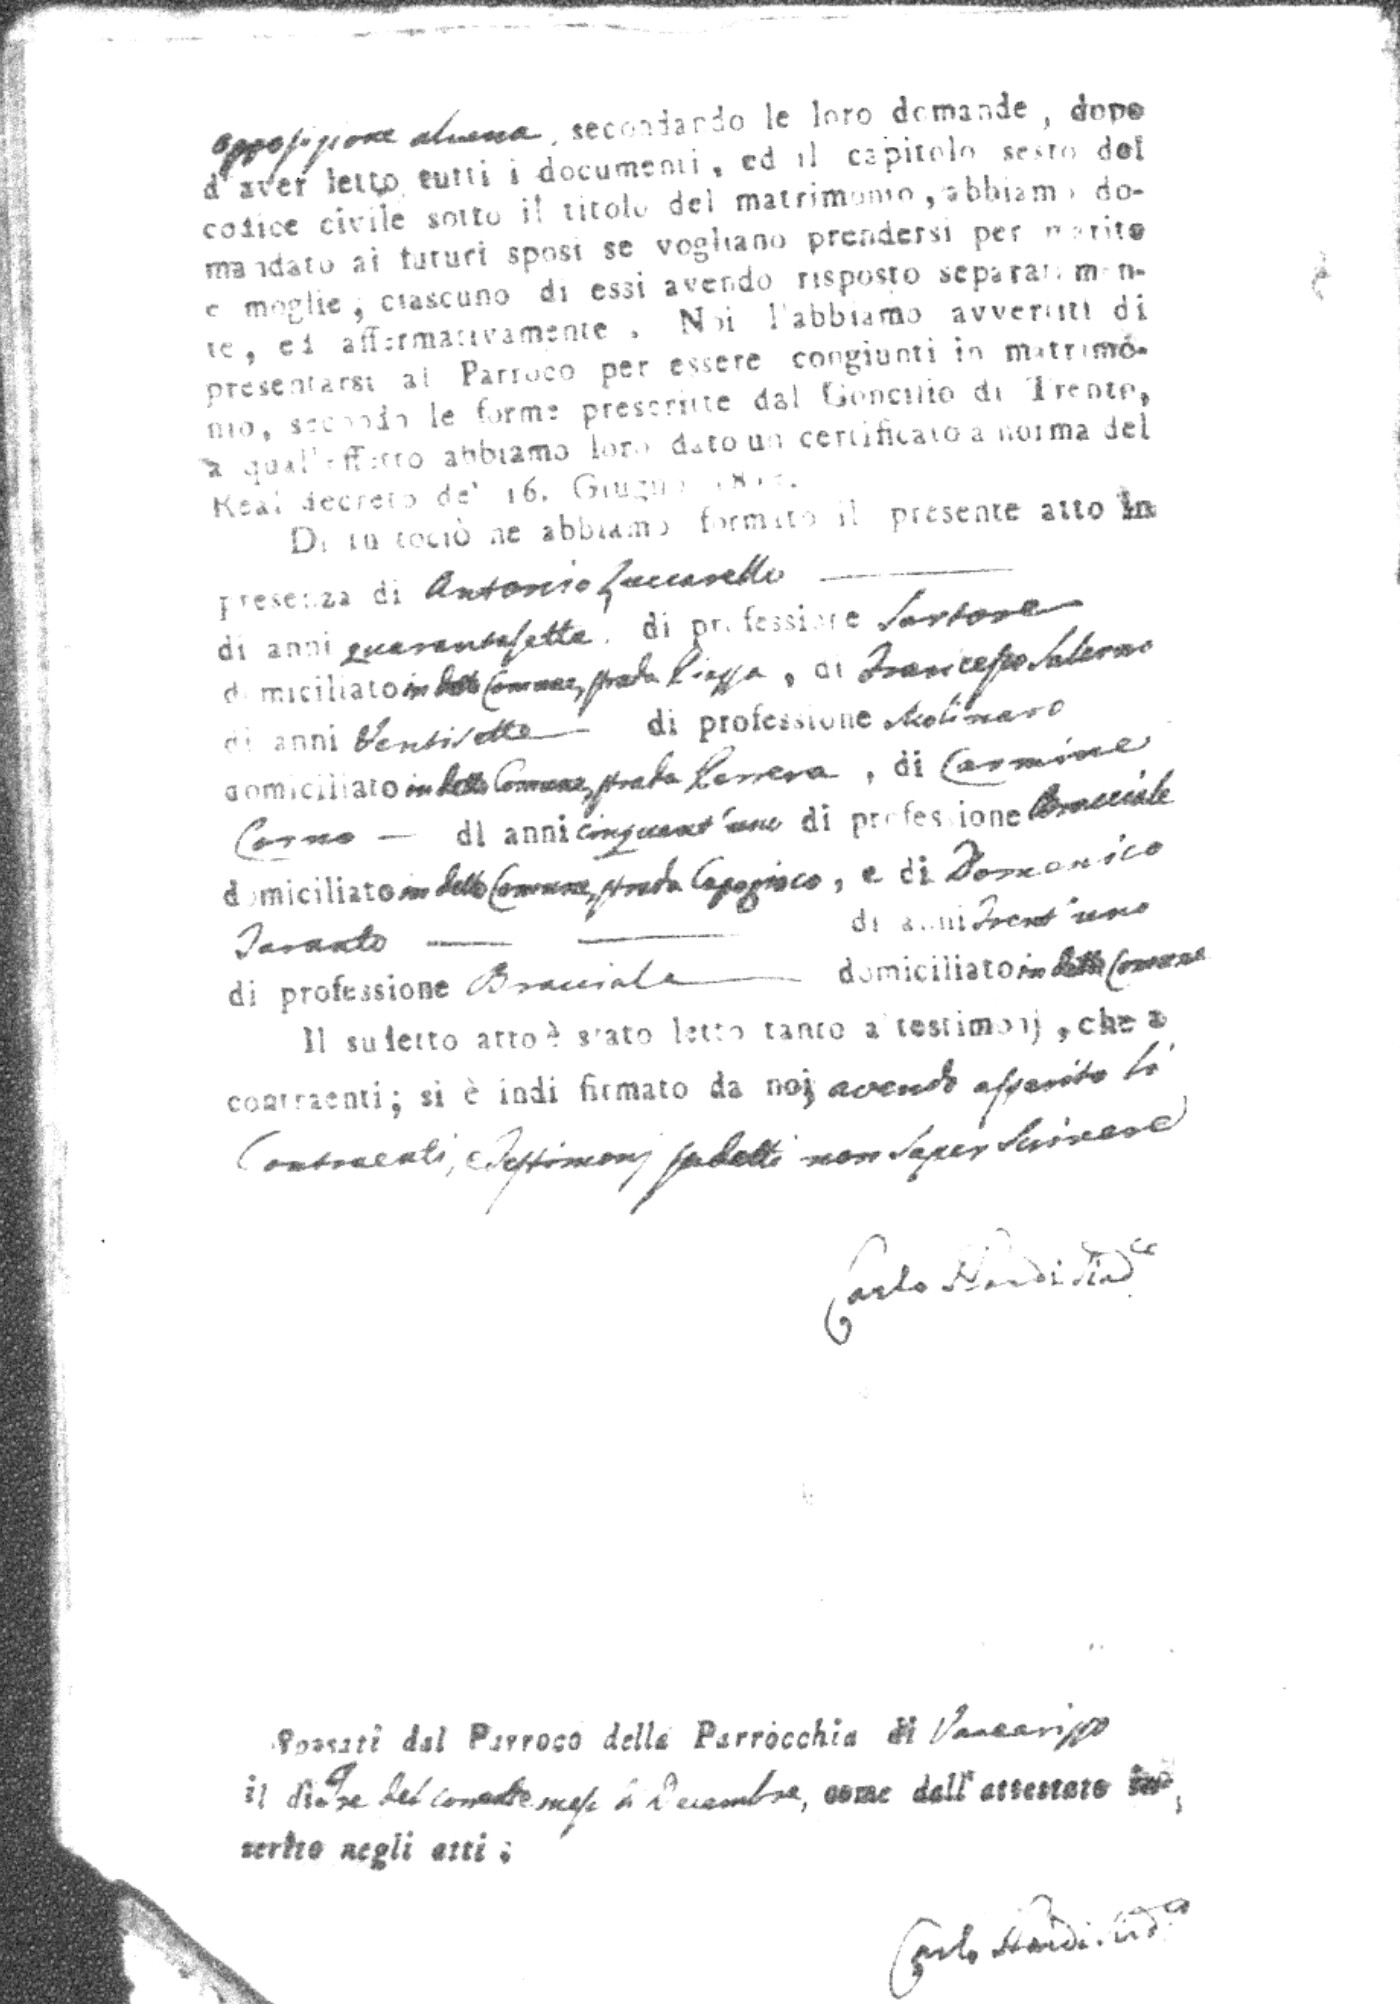 opposizione alcuna, secondando le loro domande, dopo
d'aver letto tutti i documenti, ed il capitolo sesto del
codice civile sotto il titolo del matrimonio, abbiamo do-
mandato ai futuri sposi se vogliano prendersi per marito
e moglie; ciascuno di essi avendo risposto separatamen-
te, ed affermativamente. Noi l'abbiamo avvertiti di
presentarsi al Parroco per essere congiunti in matrimo-
nio, secondo le forme prescritte dal Concilio di Trento,
a qual'effetto abbiamo loro dato un certificato a norma del
Real decreto de' 16. Giugno
Di tuttociò ne abbiamo formato il presente atto in
presenza di Antonio Zuccarello
di anni quarantasette di professione Sartore
domiciliato in detto Comune, strada Piazza, di Francesco Salerno
di anni Ventisette di professione Molinaro
domiciliato in detto Comune, strada, di Carmine
Corno di anni cinquant'uno di professione Bracciale
domiciliato in detto Comune, strada Capogioco, e di Domenico
Taranto di anni Trent'uno
di professione Bracciale domiciliato in detto Comune
Il sudetto atto è stato letto tanto a' testimonj, che a
contraenti; si è indi firmato da noi, avendo asserito li
Contraenti, e Testimonj sudetti non saper scrivere
Carlo
Sposati dal Parroco della Parrocchia di Vaccarizzo
il dì del corrente mese di Decembre, come dall'attestato in-
serito negli atti;
Carlo